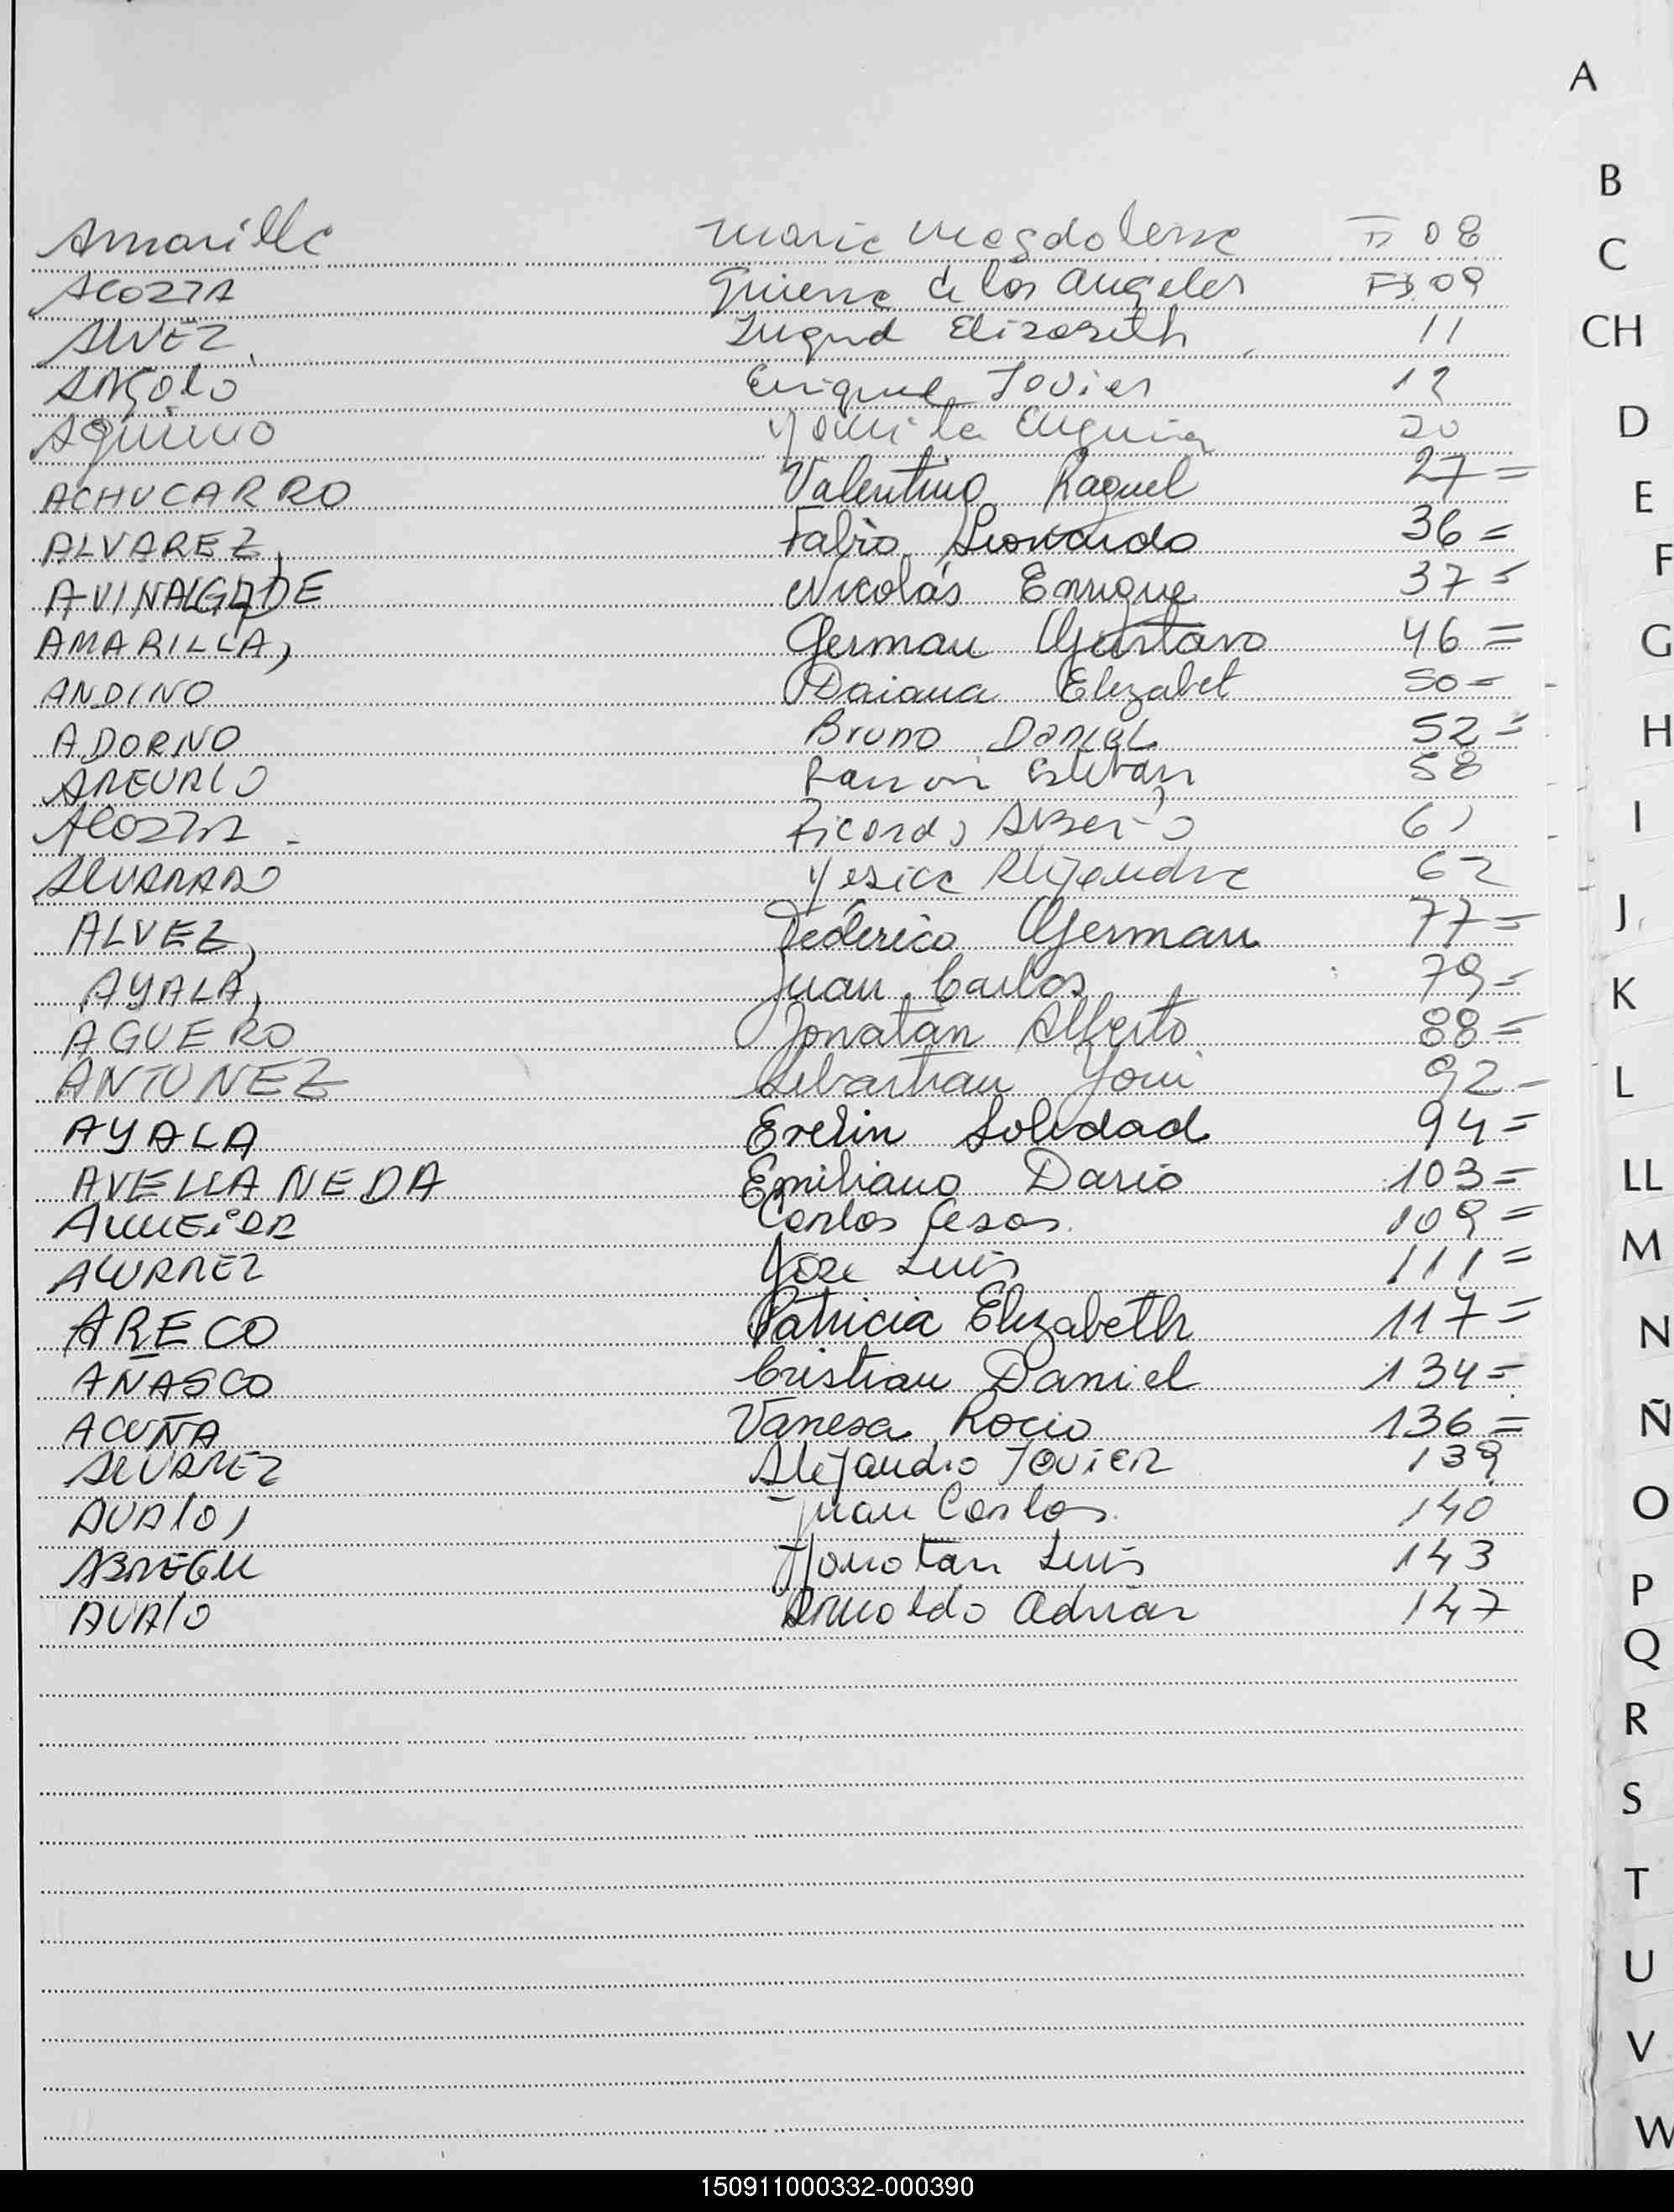 A
B
C
CH
D
E
F
G
H
I
J
K
L
LL
M
N
Ñ
O
P
Q
R
S
T
U
V
W
Amarilla Maria Magdalena Fº 08
ACOSTA de los Angeles Fº 09
ALVEZ Elizabeth 11
Enrique Javier 12
Aquino Yamila Eugenia 20
ACHUCARRO Valentino Raquel 27=
ALVAREZ, Fabio Leonardo 36=
AVINALGADE Nicolás Enrique 37=
AMARILLA, German Gustavo 46=
ANDINO Daiana Elizabet 50=
ADORNO Bruno Daniel 52=
AREVALO Ramon Esteban 58
Acosta Ricardo Alberto 61
ALVARADO Yesica Alejandra 62
ALVEZ, Féderico German 77=
AYALA, Juan Carlos 79=
AGUERO Jonatan Alberto 88=
ANTUNEZ Sebastian Yoni 92=
AYALA Evelin Soledad 94=
AVELLANEDA Emiliano Dario 103=
ALMEIDA Carlos Cesar 109=
ALVAREZ Jose Luis 111=
ARECO Patricia Elizabeth 117=
AÑASCO Cristian Daniel 134=
ACUÑA Vanesa Rocio 136=
ALVAREZ Alejandro Javier 139
AVALOS Juan Carlos 140
ABREGU Jonotan Luis 143
AVALO Arnoldo Adrian 147
150911000332-000390